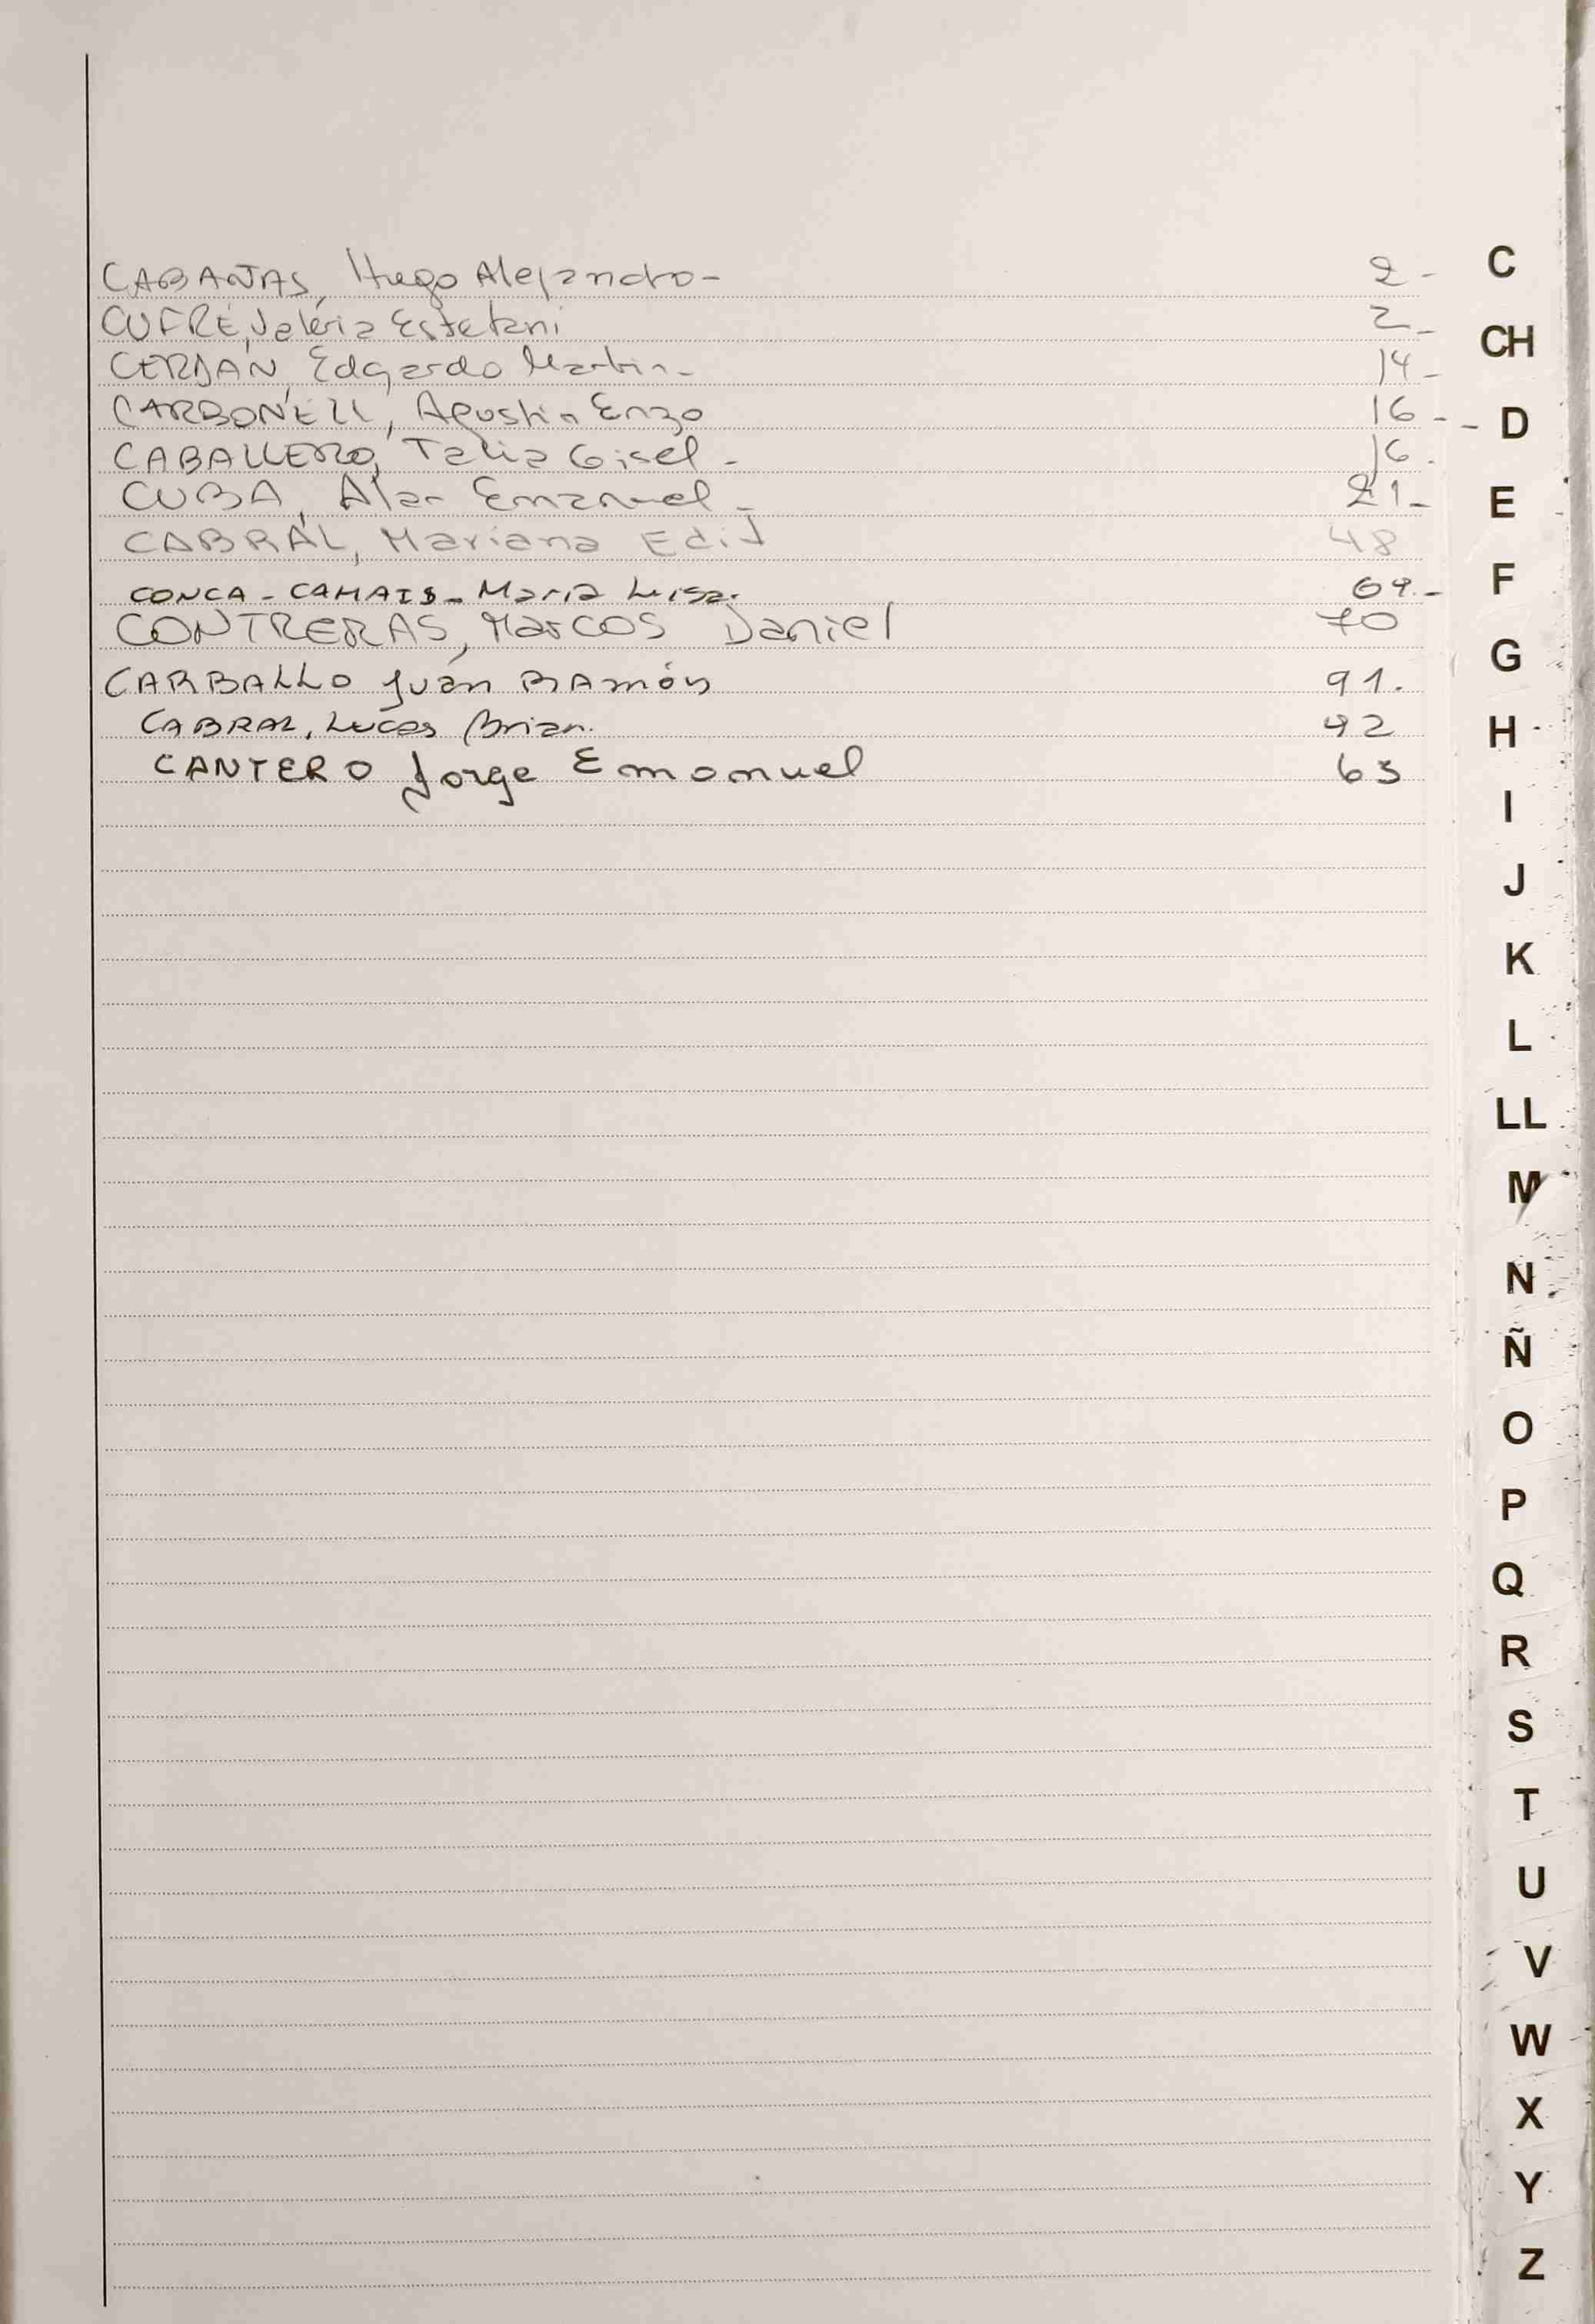 CABAÑAS, Hugo Alejandro- 2-
CUFRÉ, Valeria Estefani 2-
CERDÁN, Edgardo Martin- 14-
CARBONELL, Agustin Enzo 16-
CABALLERO, Talia Gisel- 16.
CUBA, Alan Emanuel- 21-
CABRAL, Mariana Edit 48
CONCA-CAMAIS-María Luisa. 69.-
CONTRERAS, Marcos Daniel 70
CARBALLO Juan RAmón 91.
CABRAL, Lucas Brian. 92
CANTERO Jorge Emanuel 63
C
CH
D
E
F
G
H
I
J
K
L
LL
M
N
Ñ
O
P
Q
R
S
T
U
V
W
X
Y
Z